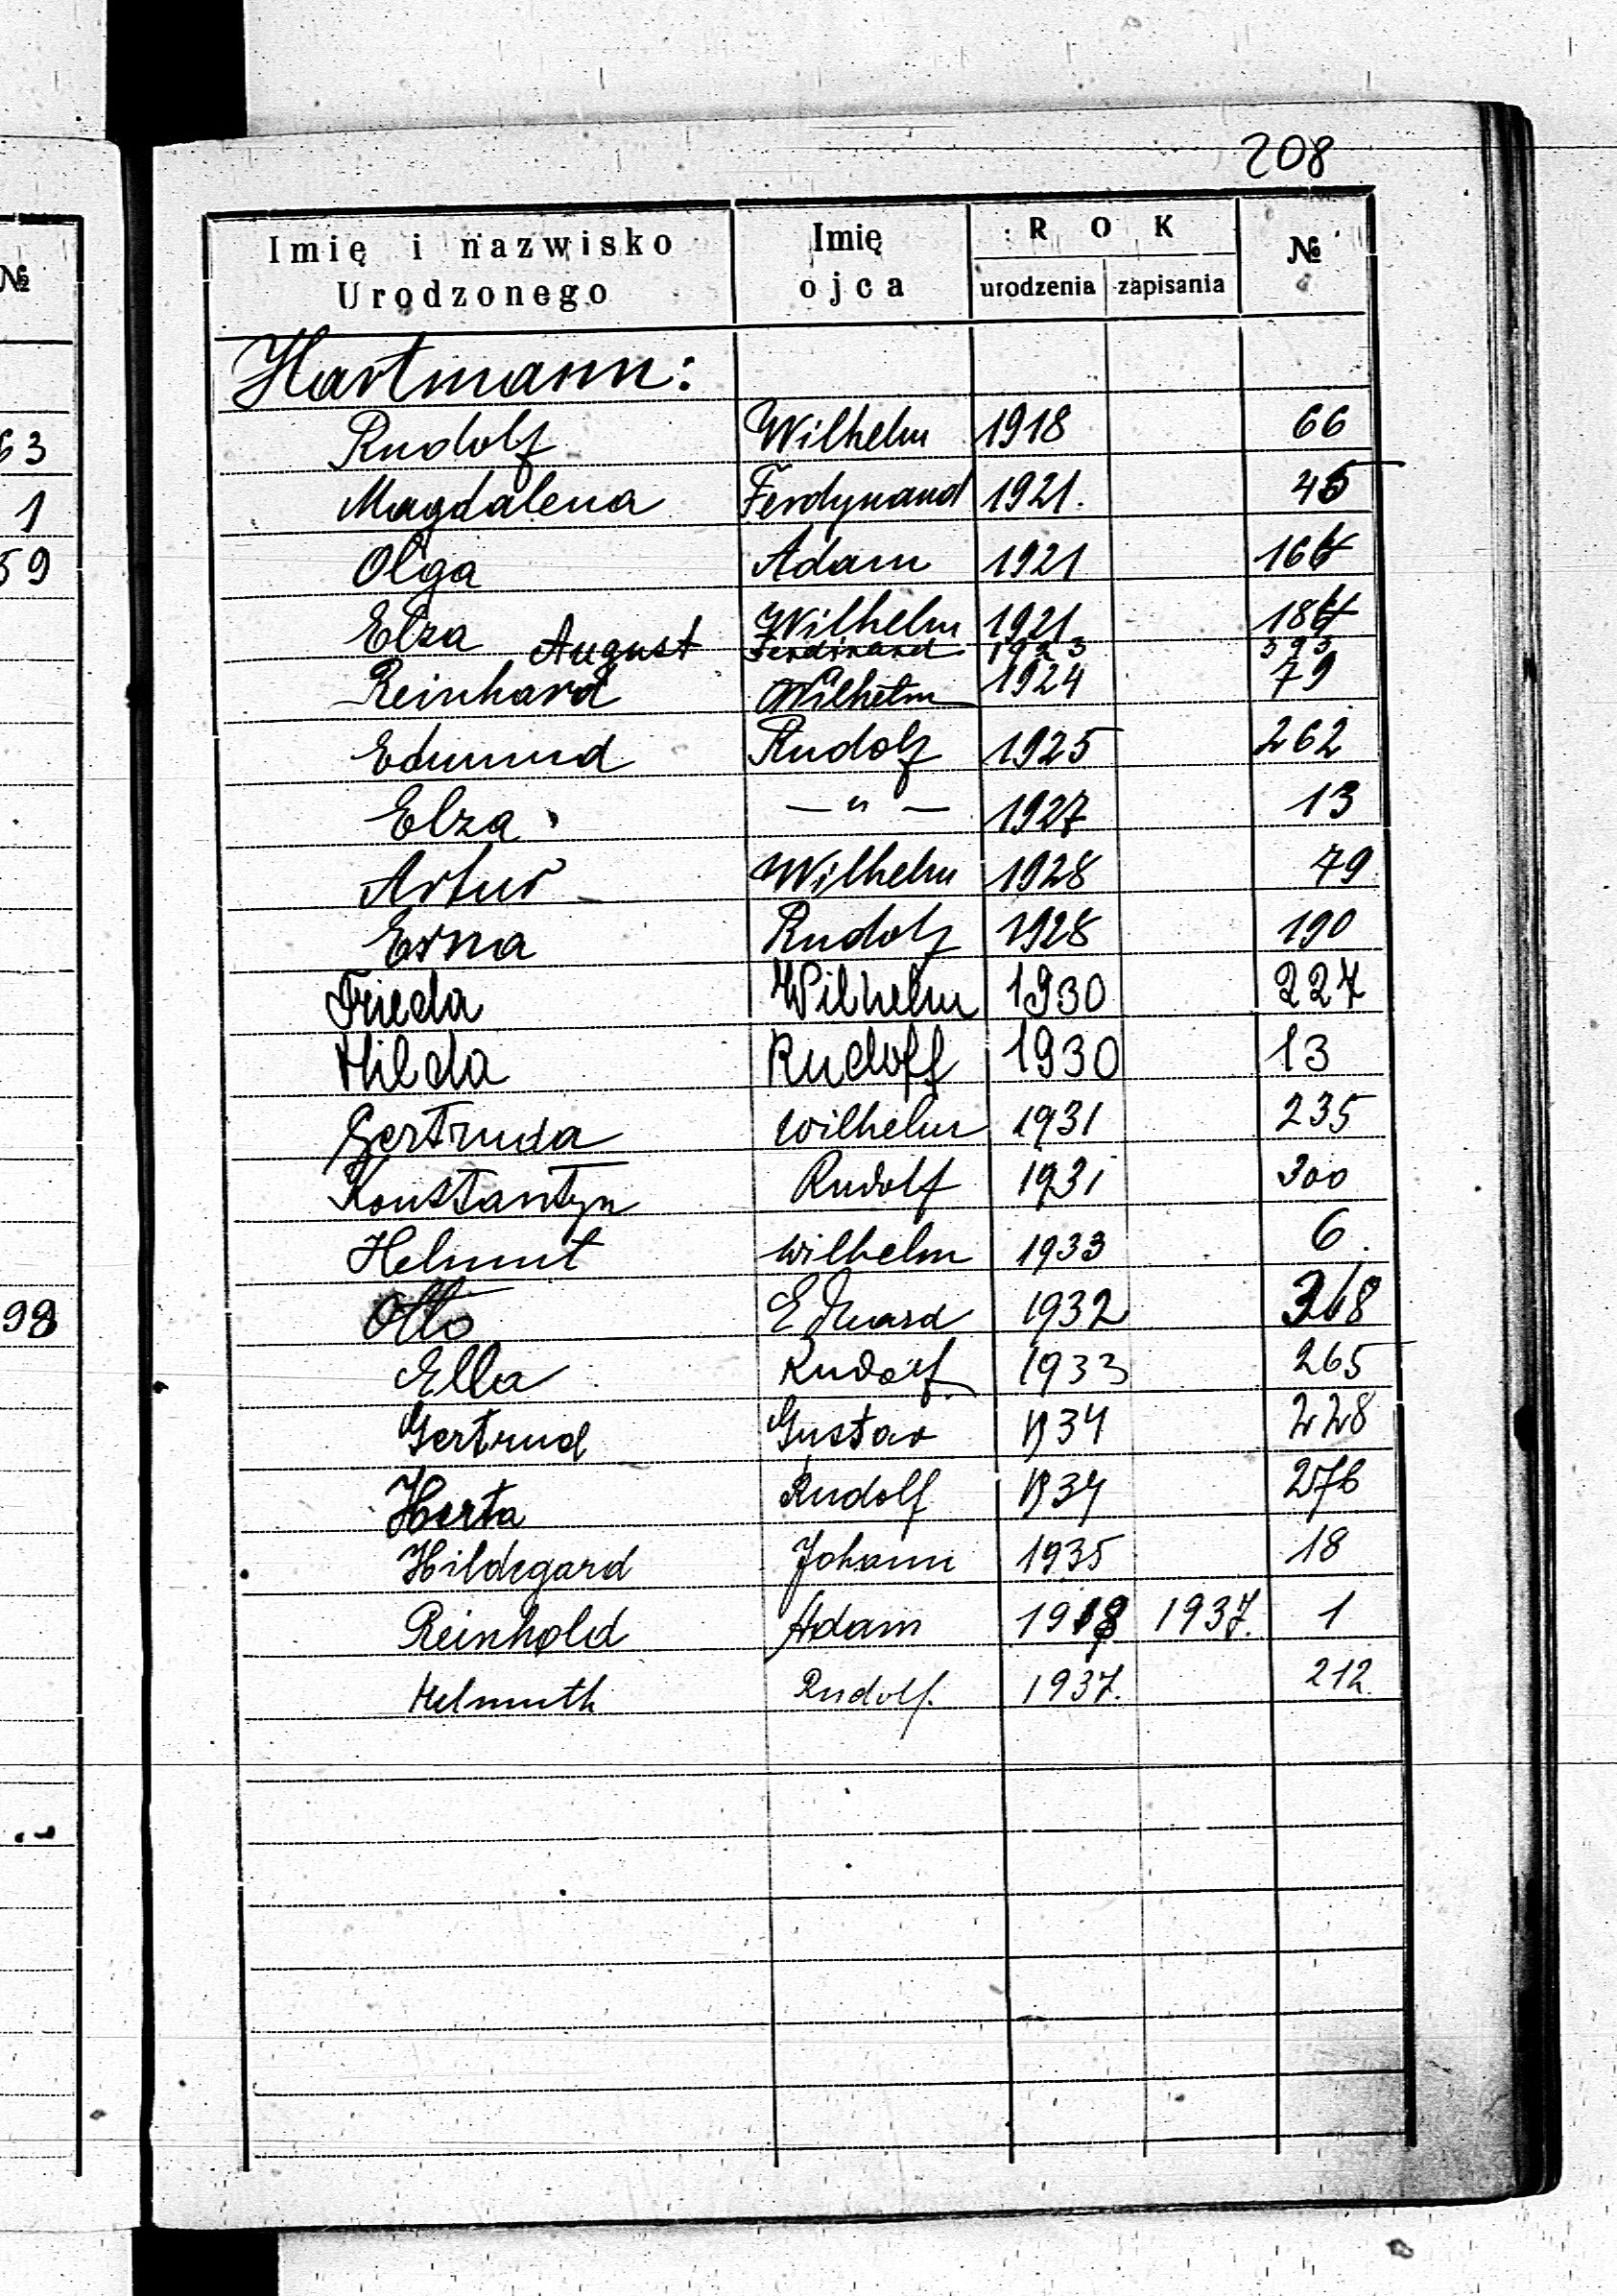 208
№
Imię i nazwisko Urodzonego
Imię ojca
ROK
urodzenia zapisania
№
Hartmann:
Rudolf Wilhelm 1918 66
Magdalena Ferdynand 1921. 45
Olga Adam 1921
Elza Wilhelm 1921
August Ferdinand 1923 393
Reinhard Wilhelm 1924 79
Edmund Rudolf 1925 262
Elza — " — 1927 13
Artur Wilhelm 1928 79
Erna Rudolf 1928 190
Frieda Wilhelm 1930 227
Hilda Rudolf 1930 13
Gertruda Wilhelm 1931 235
Konstantyn Rudolf 1931 300
Helmut Wilhelm 1933 6.
Otto Eduard 1932 318
Ella Rudolf 1933 265
Gertrud Gustav 1934 228
Herta Rudolf 1934 276
Hildegard Johann 1935 18
Reinhold Adam 1918 1937. 1
Helmuth Rudolf. 1937. 212.
63
1
59